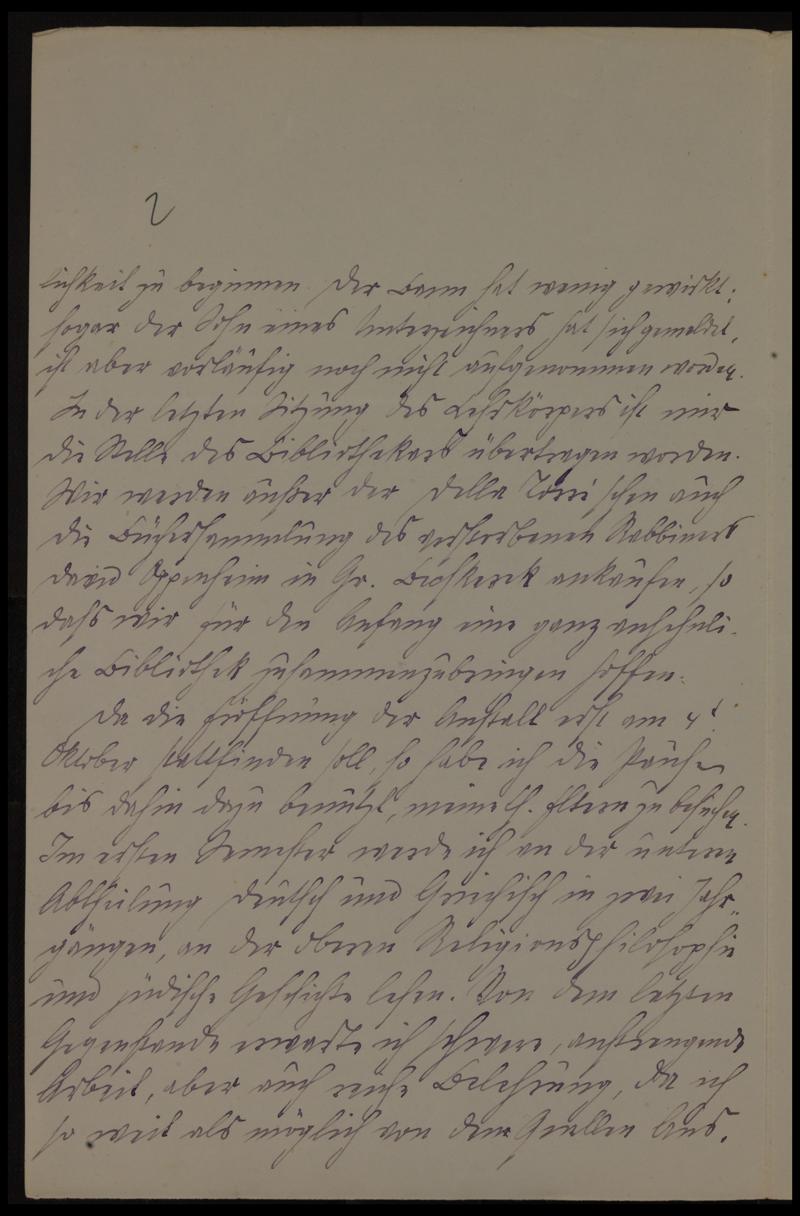 2
lichkeit zu beginnen. Der Bann hat wenig gewirkt;
sogar der Sohn eines Unterzeichners hat sich gemeldet,
ist aber vorläufig noch nicht aufgenommen worden.
In der letzten Sitzung des Lehrkörpers ist mir
die Stelle des Bibliothekars übertragen worden.
Wir werden außer der Della Torre'schen auch
die Büchersammlung des verstorbenen Rabbiners
David Oppenheim in Gr. Becskerek ankaufen, so
daß wir für den Anfang eine ganz ansehnli-
che Bibliothek zusammenzubringen hoffen.
Da die Eröffnung der Anstalt erst am 4t.
Oktober stattfinden soll, so habe ich die Pause
bis dahin dazu benützt, meine l. Eltern zu besuchen.
Im ersten Semester werde ich an der untern
Abtheilung Deutsch und Griechisch in zwei Jahr-
gängen, an der oberen Religionsphilosophie
und jüdische Geschichte lesen. Von dem letzten
Gegenstande erwarte ich schwere, anstrengende
Arbeit, aber auch reiche Belehrung, da ich
so weit als möglich von den Quellen Aus-